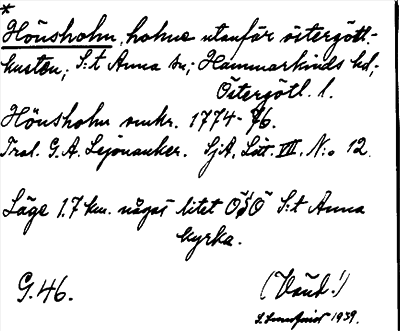 *
Hönsholm, holme utanför östergötl.-
kusten; S:t Anna sn; Hammarkinds hd;
Östergötl. l.
Hönsholm omkr. 1774-76.
Trol. G. A. Lejonancker. SjA, Litt. VII. N:o 12.
Läge 1.7 km. något litet ÖSÖ S:t Anna
kyrka.
G.46. (Vänd!)
1939.